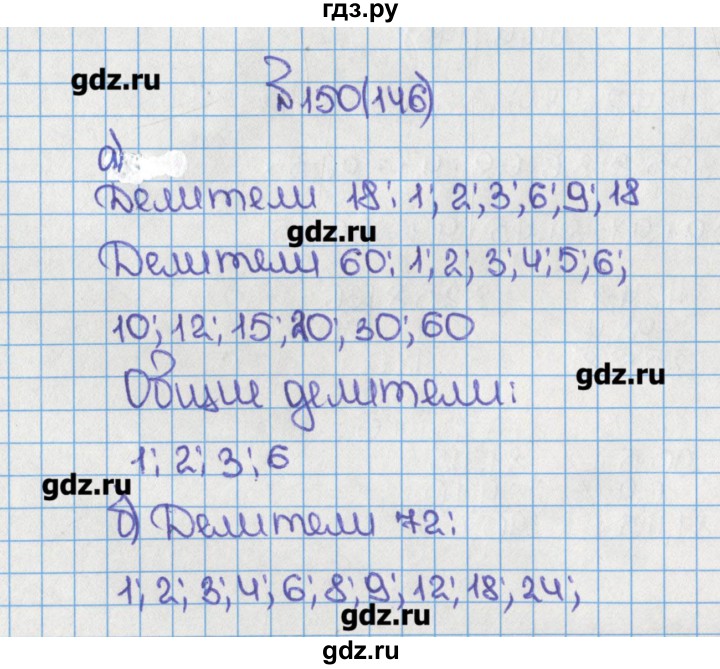 гдз.ру
gdz.ru
№150(146)
а)
Делители 18: 1; 2; 3; 6; 9; 18
gdz.ru
Делители 60: 1; 2; 3; 4; 5; 6;
10; 12; 15; 20; 30; 60
gdz.ru
Общие делители:
1; 2; 3; 6
gdz.ru
б) Делители 72:
1; 2; 3; 4; 6; 8; 9; 12; 18; 24;
gdz.ru
gdz.ru